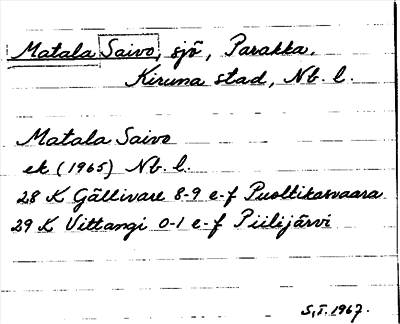 Matala Saivo, sjö, Parakka.
Kiruna stad, Nb. l.
Matala Saivo
ek (1965) Nb. l.
28 K Gällivare 8-9 e-f Puoltikasvaara
29 K Vittangi 0-1 e-f Piilijärvi
S.I. 1967.